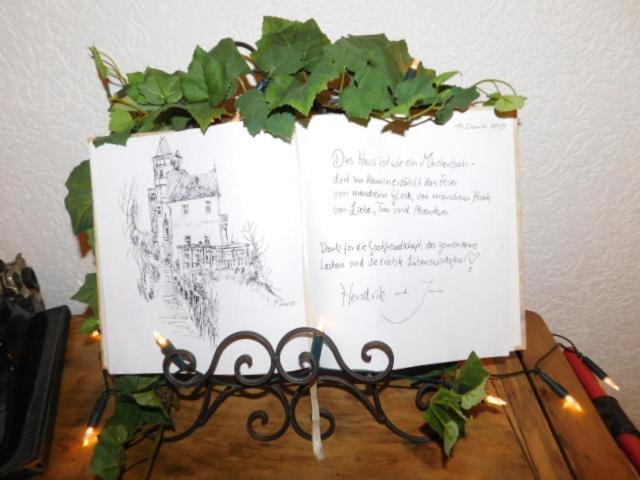 Dies Haus ist wie ein Märchenbuch -
dort im Kamin erzählt das Feuer
von manchem Glück, von manchem Fluch
von Liebe, Treu und Abenteuer
Dank für die Gastfreundschaft, das gemeinsame
Lachen und die erlebte Lebenswürdigkeit
Hendrik und